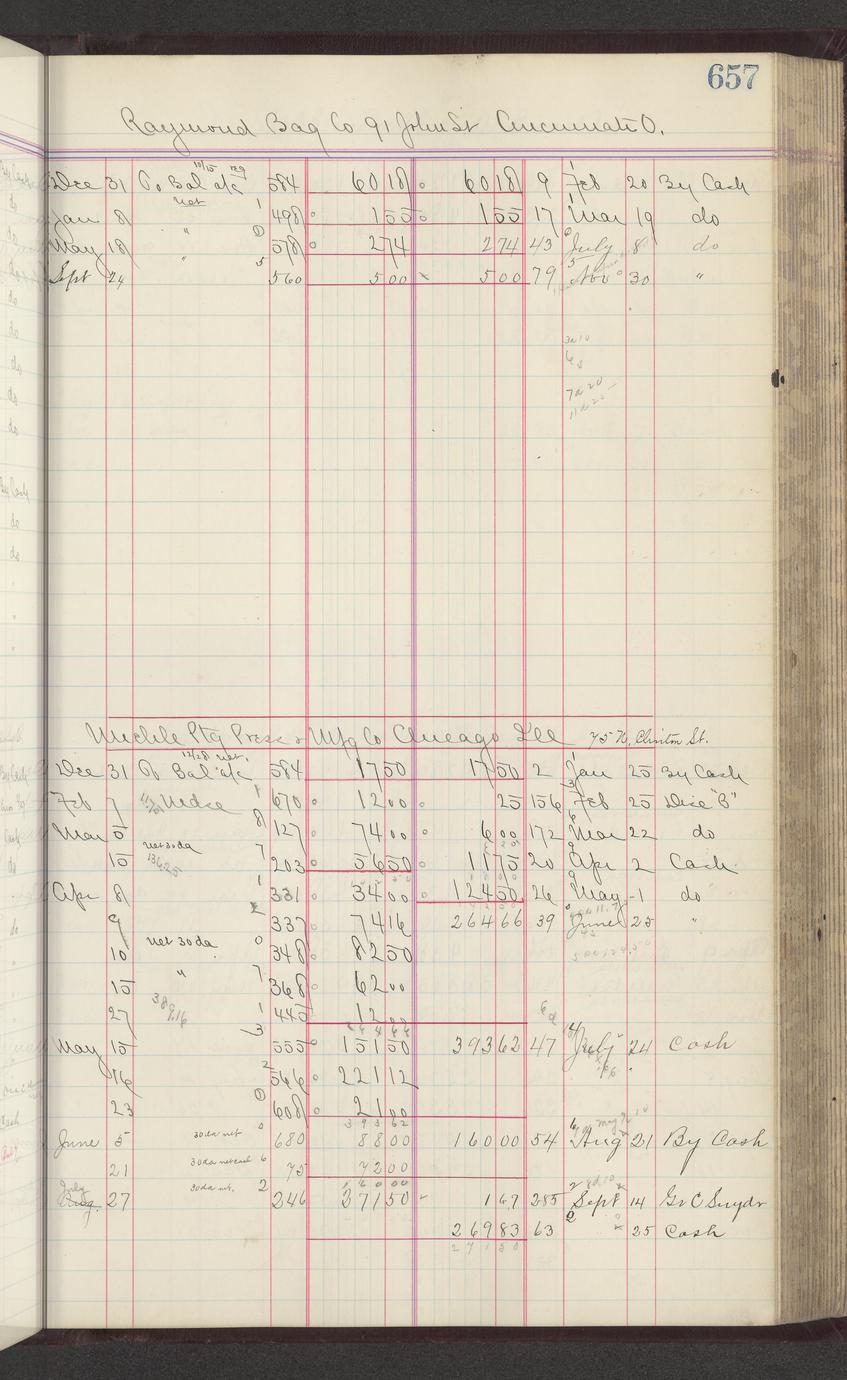 657
Raymond Bag Co 91 John St Cincinnati O.
Dec 31 To Bal a/c 584 60 18 60 18 9 Feb 20 By Cash
Jan 8 net 498 1 55 1 55 17 Mar 19 do
May 18 " 578 2 74 2 74 43 July 8 do
Sept 24 " 560 5 00 5 00 79 Nov 30 "
Miehle Ptg Press & Mfg Co Chicago Ill 75 N. Clinton St.
Dec 31 To Bal a/c 584 17 50 17 50 2 Jan 25 By Cash
Feb 7 Mdse 670 12 00 25 156 Feb 25 Disc "B"
Mar 5 127 74 00 6 00 172 Mar 22 do
15 net 30 da 203 56 50 11 75 20 Apr 2 Cash
Apr 8 331 34 00 124 50 26 May 1 do
9 337 74 16 264 66 39 June 25 "
10 net 30 da 348 82 50
15 " 368 62 00
27 389.16 445 12 00
May 15 555 151 50 393 62 47 July 24 Cash
16 566 221 12
23 608 21 00
393 62
June 5 30 da net 680 88 00 160 00 54 Aug 21 By Cash
21 30 da net 75 72 00
160 00
July 27 30 da net. 246 371 50 1 67 285 Sept 14 Gr C Snyder
269 83 63 25 Cash
271 50